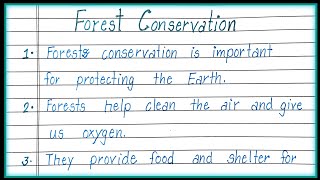 Forest Conservation
1. Forests conservation is important
for protecting the Earth.
2. Forests help clean the air and give
us oxygen.
3. They provide food and shelter for